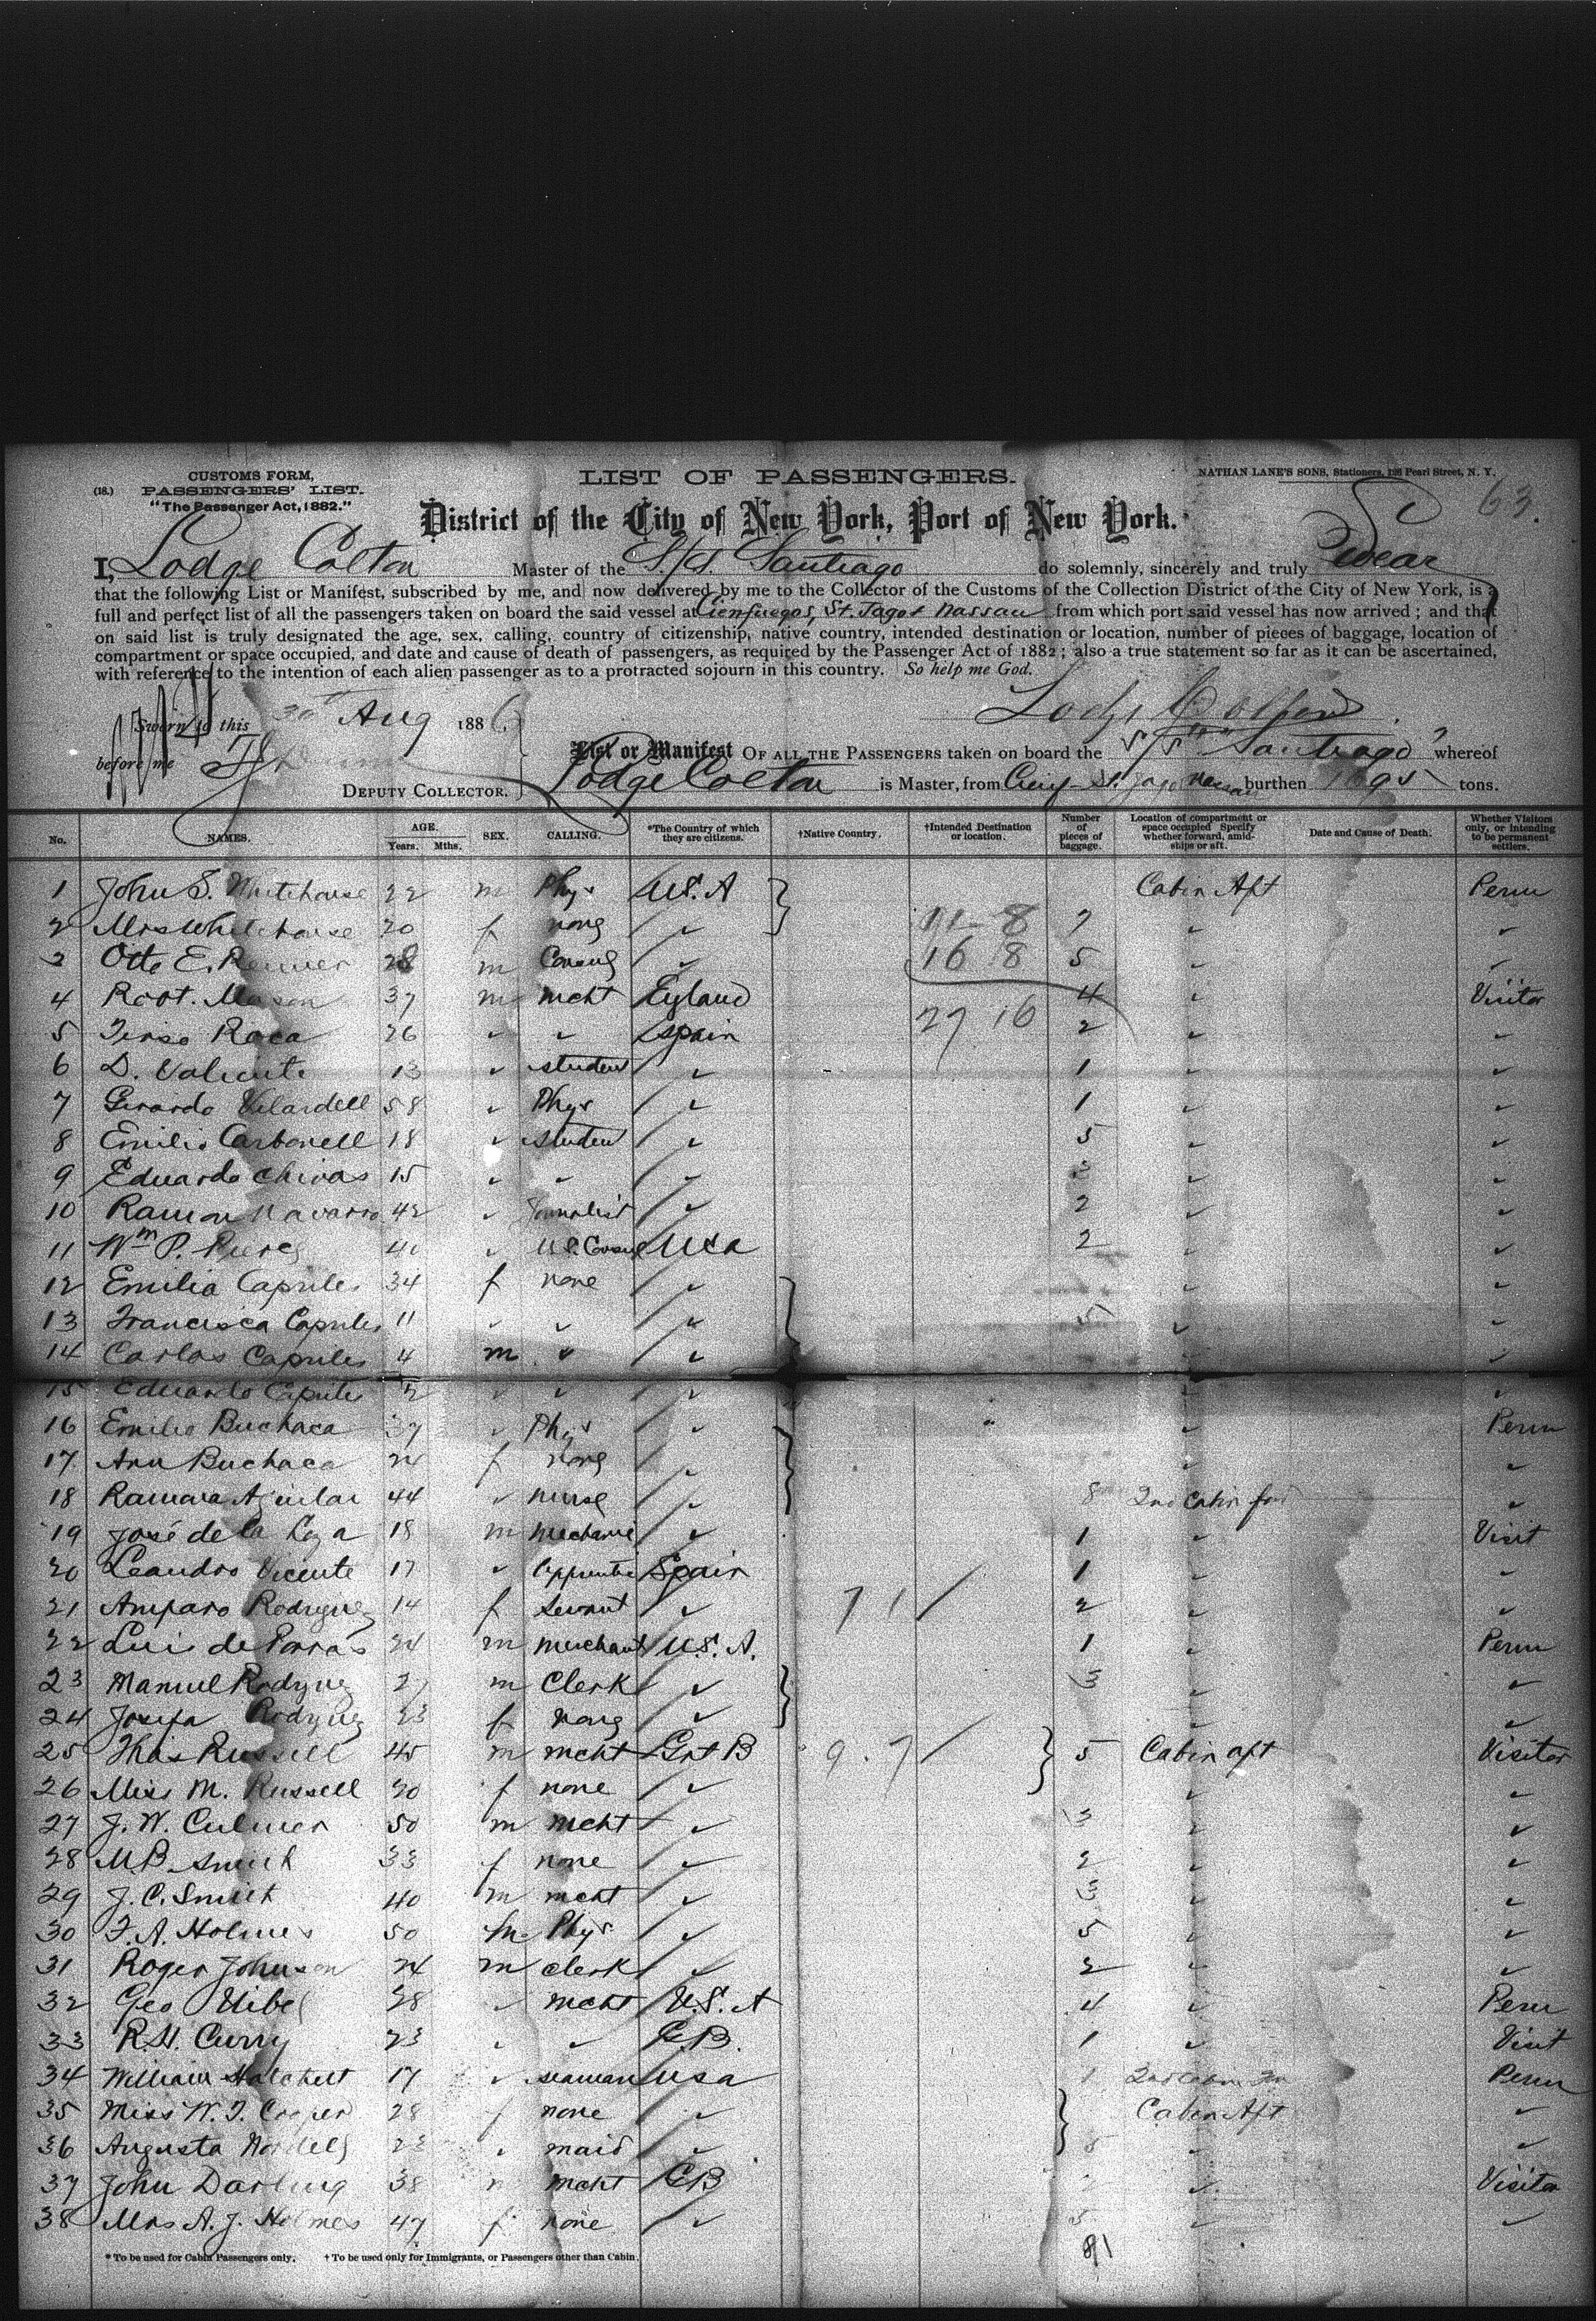 CUSTOMS FORM,
(18.) PASSENGERS' LIST.
"The Passenger Act, 1882."
LIST OF PASSENGERS.
NATHAN LANE'S SONS, Stationers, 196 Pearl Street, N. Y.
63.
District of the City of New York, Port of New York.
I, Lodge Colton Master of the S/S. Santiago do solemnly, sincerely and truly Swear
that the following List or Manifest, subscribed by me, and now delivered by me to the Collector of the Customs of the Collection District of the City of New York, is a
full and perfect list of all the passengers taken on board the said vessel at Cienfuegos, St. Jago & Nassau from which port said vessel has now arrived; and that
on said list is truly designated the age, sex, calling, country of citizenship, native country, intended destination or location, number of pieces of baggage, location of
compartment or space occupied, and date and cause of death of passengers, as required by the Passenger Act of 1882; also a true statement so far as it can be ascertained,
with reference to the intention of each alien passenger as to a protracted sojourn in this country. So help me God.
Sworn to this 30th Aug 1886. Lodge Colton
before me
List or Manifest OF ALL THE PASSENGERS taken on board the S/S "Santiago" whereof
DEPUTY COLLECTOR. Lodge Colton is Master, from St. Jago Nassau burthen 1695 tons.
No. NAMES. AGE. Years. Mths. SEX. CALLING. *The Country of which they are citizens. †Native Country. †Intended Destination or location. Number of pieces of baggage. Location of compartment or space occupied Specify whether forward, amidships or aft. Date and Cause of Death. Whether Visitors only, or intending to be permanent settlers.
1 John S. Whitehouse 22 m Phys U.S.A Cabin Aft Perm
2 Mrs Whitehouse 20 f none ✓ 11 - 8 7 ✓ ✓
3 Otto E. Reimer 28 m ✓ 16 8 5 ✓ ✓
4 Robt. Mason 37 m mcht England 4 ✓ Visitor
5 Roca 26 ✓ ✓ Spain 27 16 2 ✓ ✓
6 D. Valiente 13 ✓ student ✓ 1 ✓ ✓
7 Gerardo Vilardell 58 ✓ Phys ✓ 1 ✓ ✓
8 Emilio Carbonell 18 ✓ student ✓ 5 ✓ ✓
9 Eduardo Chivas 15 ✓ ✓ ✓ 3 ✓ ✓
10 Ramon Navarro 42 ✓ Journalist ✓ 2 ✓ ✓
11 Wm P. Pierce ✓ U.S. Consul USA 2 ✓ ✓
12 Emilia Capriles 34 f none ✓ ✓ ✓
13 Francisca Capriles 11 ✓ ✓ ✓ 5 ✓ ✓
14 Carlos Capriles 4 m ✓ ✓ ✓
15 Eduardo Capriles 2 ✓ ✓ ✓ ✓ ✓
16 Emilio Buchaca 37 ✓ Phys ✓ ✓ Perm
17 Ana Buchaca 24 f none ✓ ✓ ✓
18 Ramona Aguilar 44 ✓ nurse ✓ 8 2nd Cabin for ✓
19 José de la 18 m mechanic ✓ 1 ✓ Visit
20 Leandro Vicente 17 ✓ apprentice Spain 1 ✓ ✓
21 Amparo Rodryguez 14 f servant ✓ 7 1 / 2 ✓ ✓
22 Luis de Paras 24 m merchant U.S.A. 1 ✓ Perm
23 Manuel Rodryguez 27 m Clerk ✓ 3 ✓ ✓
24 Josefa Rodryguez 23 f none ✓ ✓ ✓
25 Thos Russell 45 m mcht Grt B 9 - 7 / 5 Cabin aft Visitor
26 Miss M. Russell 20 f none ✓ ✓ ✓
27 J. W. Culmer 50 m mcht ✓ 3 ✓ ✓
28 M.B. Smith 33 f none ✓ 2 ✓ ✓
29 J. C. Smith 40 m mcht ✓ 3 ✓ ✓
30 F. A. Holmes 50 m Phys ✓ 5 ✓ ✓
31 Roger Johnson 24 m clerk ✓ 2 ✓ ✓
32 Geo 28 ✓ mcht U.S.A 4 ✓ Perm
33 R. H. Curry 23 ✓ ✓ G.B. 1 ✓ Visit
34 William 17 ✓ seaman USA 1 2nd Cabin Perm
35 Miss W. F. Cooper 28 f none ✓ Cabin Aft ✓
36 Augusta 23 ✓ maid ✓ 5 ✓ ✓
37 John Darling 38 m mcht GB 2 ✓ Visitor
38 Mrs A. J. Holmes 47 f none ✓ 5 ✓ ✓
91
*To be used for Cabin Passengers only. †To be used only for Immigrants, or Passengers other than Cabin.